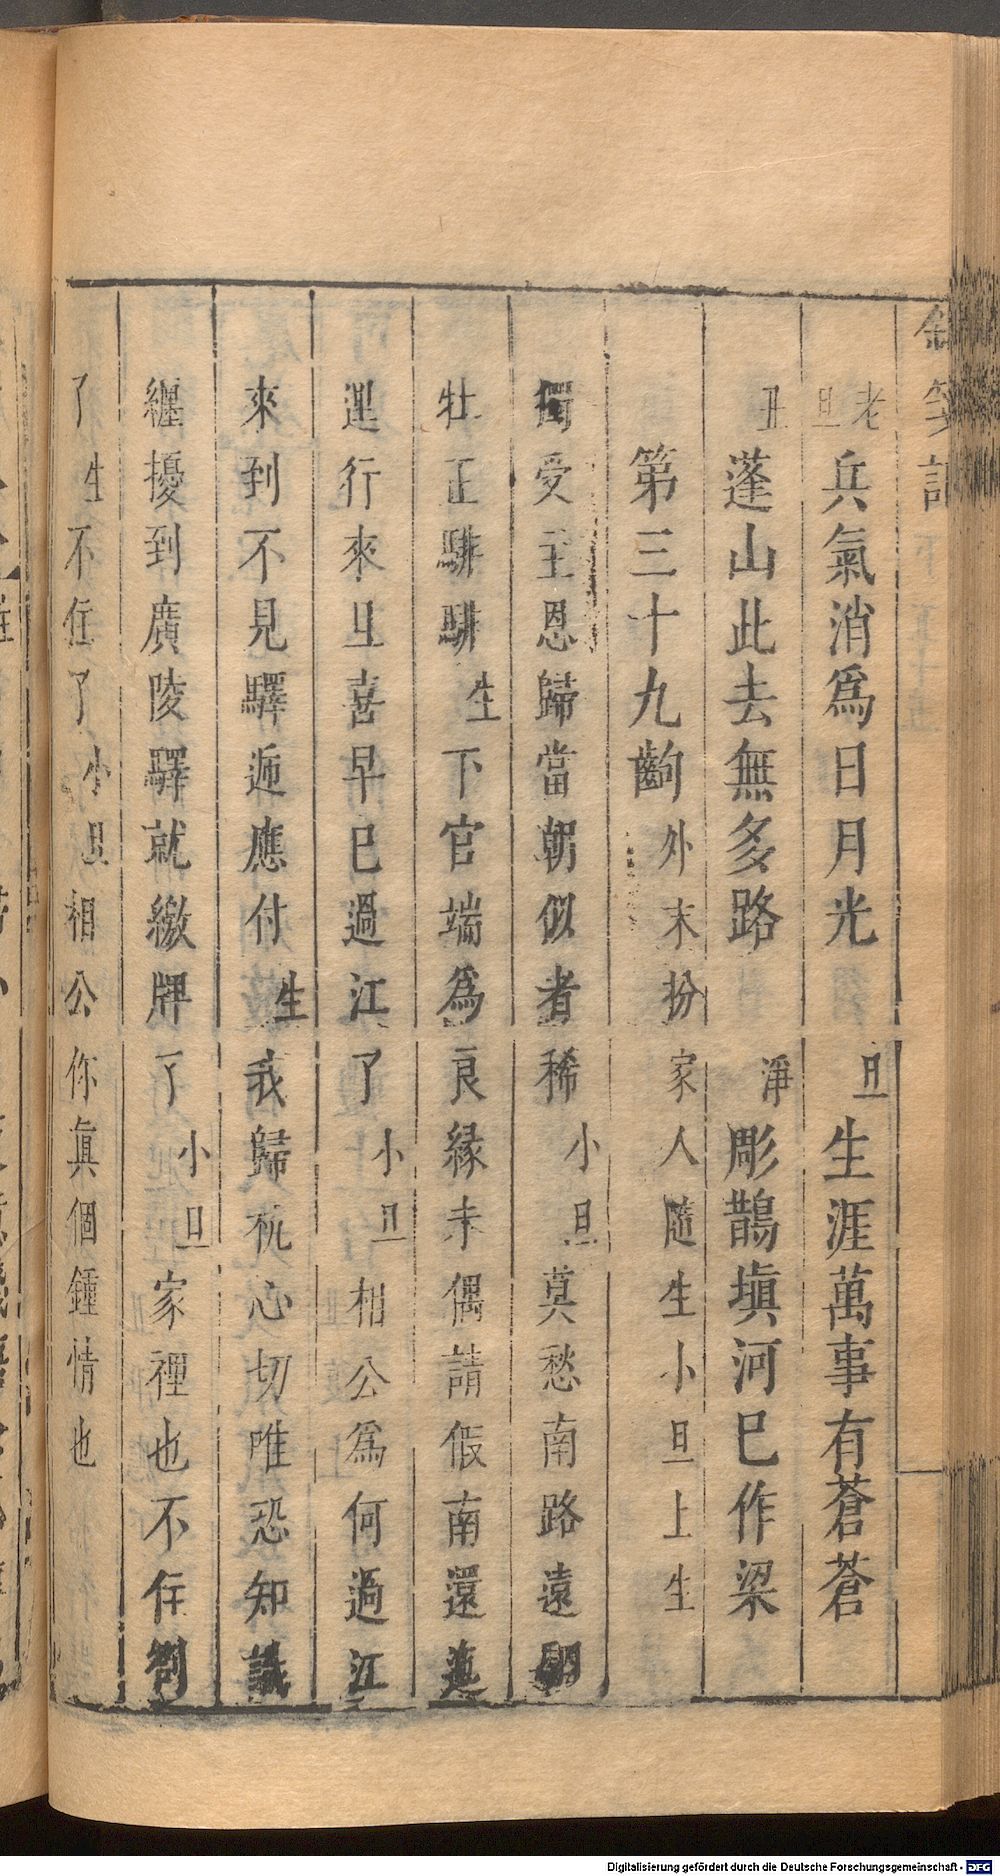 老旦兵氣消爲日月光旦生涯萬事有蒼蒼
丑蓬山此去無多路淨彫鵲塡河巳作梁
第三十九齣外末扮家人隨生小旦上生
獨受主恩歸當朝似者稀小旦莫愁南路遠
牡正騑騑生下官端爲良緣未偶請假南還
運行來且喜早巳過江了小旦相公爲何過江
來到不見驛逓應付生我歸杭心切唯恐知
纏擾到廣陵驛就繳牌了小旦家裡也不住
了生不住了小旦相公你眞個鍾情也
Digitalisierung gefördert durch die Deutsche Forschungsgemeinschaft - DFG